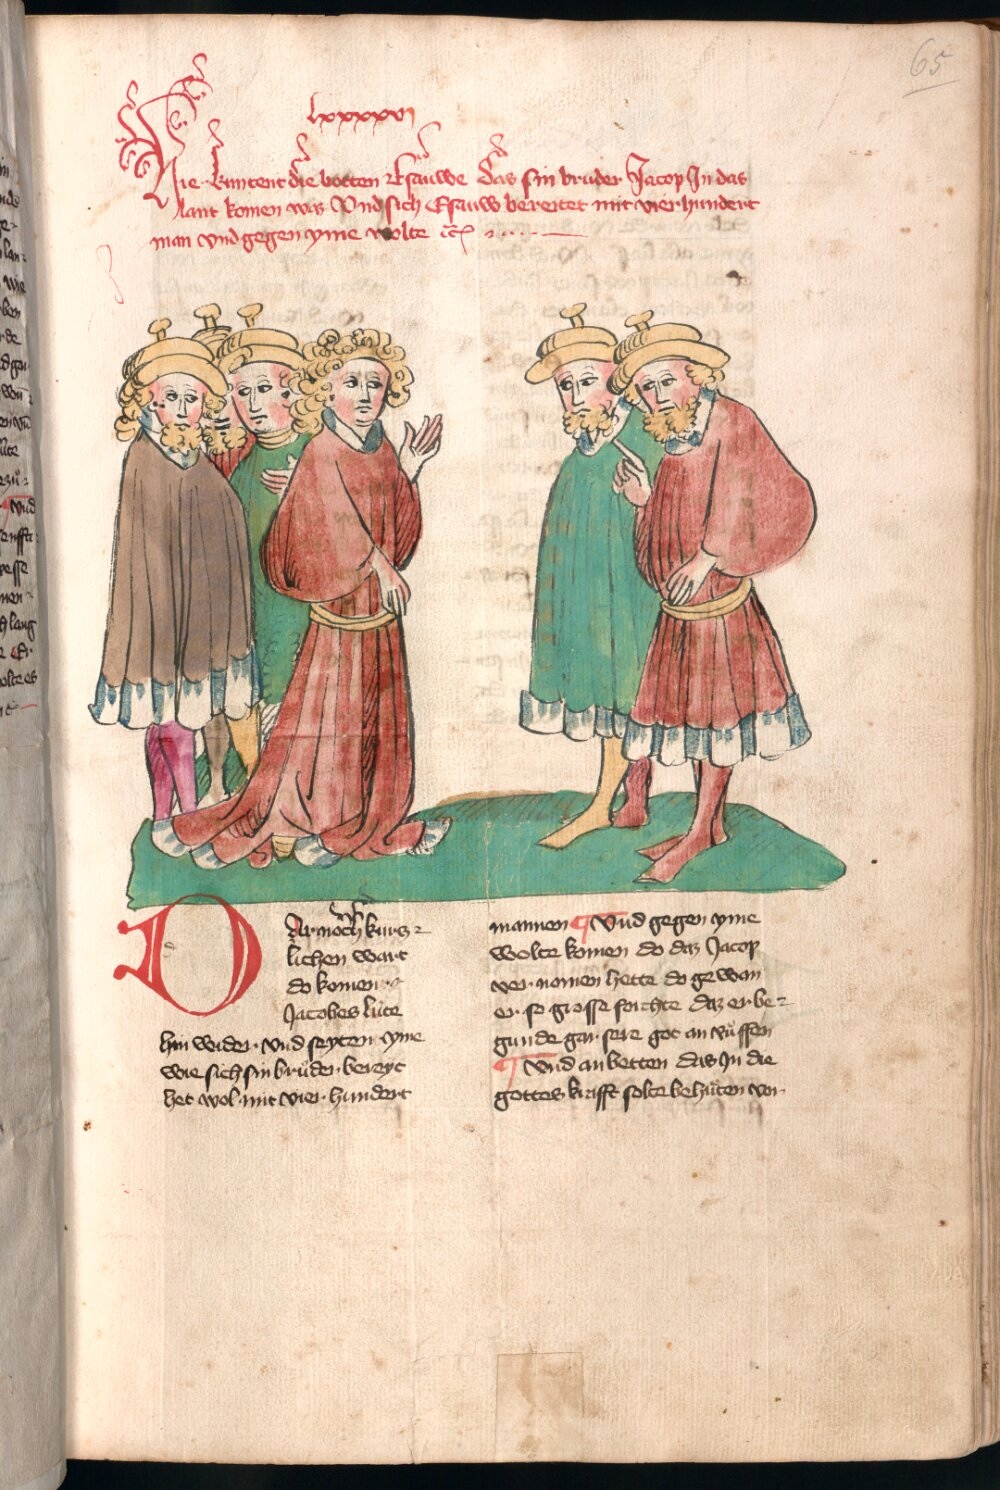 65
lxxxxvi
Hie kuntent die botten Esauwe Das sin bruder Jacop In das
lant komen was Vnd sich Esauw bereitet mit vier hundert
man vnd gegen yme wolte
DArnoch kurtz
lichen wart
do komen
Jacobes lúte
hin wider vnd seyten yme
wie sich sin brůder bereyt
het wol mit vier hundert
mannen ¶ Vnd gegen yme
wolte komen do daz Jacop
ver nomen hette do gewan
er so grosse forchte daz er be
gunde gar sere got an růffen
¶ Vnd an betten das In die
gottes krafft solte behůten vor